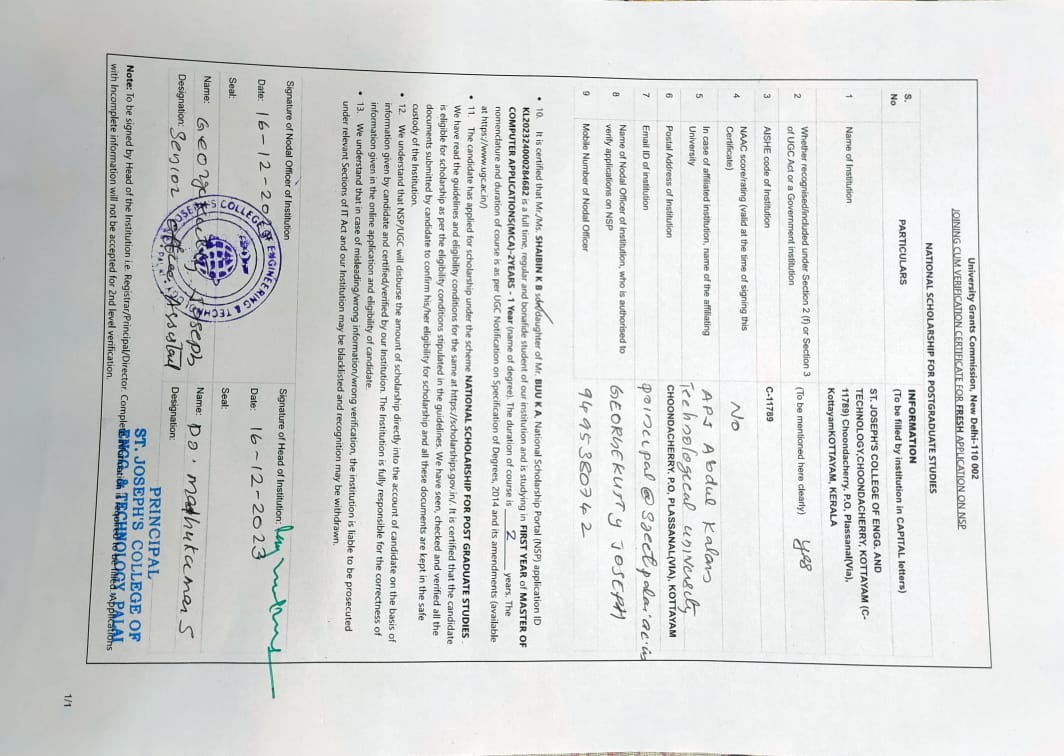 University Grants Commission, New Delhi-110 002
JOINING CUM VERIFICATION CERTIFICATE FOR FRESH APPLICATION ON NSP
NATIONAL SCHOLARSHIP FOR POSTGRADUATE STUDIES
S. No PARTICULARS INFORMATION
(To be filled by institution in CAPITAL letters)
1 Name of Institution
ST. JOSEPH'S COLLEGE OF ENGG. AND
TECHNOLOGY,CHOONDACHERRY, KOTTAYAM (C-
11789) Choondacherry, P.O, Plassanal(Via),
KottayamKOTTAYAM, KERALA
2 Whether recognised/included under Section 2 (f) or Section 3
of UGC Act or a Government institution
(To be mentioned here clearly) yes
3 AISHE code of Institution C-11789
4 NAAC score/rating (valid at the time of signing this
Certificate)
No
5 In case of affiliated institution, name of the affiliating
University
APJ Abdul Kalam
Technological university
6 Postal Address of Institution CHOONDACHERRY, P.O, PLASSANAL(VIA), KOTTAYAM
7 Email ID of institution
8 Name of Nodal Officer of Institution, who is authorised to
verify applications on NSP
GEORGEKUTTY JOSEPH
9 Mobile Number of Nodal Officer 9495380742
• 10. It is certified that Mr./Ms. SHABIN K B son/daughter of Mr. BIJU K A, National Scholarship Portal (NSP) application ID
KL202324000284682 is a full time, regular and bonafide student of our institution and is studying in FIRST YEAR of MASTER OF
COMPUTER APPLICATIONS(MCA)-2YEARS - 1 Year (name of degree). The duration of course is 2 years. The
nomenclature and duration of course is as per UGC Notification on Specification of Degrees, 2014 and its amendments (available
at https://www.ugc.ac.in/)
• 11. The candidate has applied for scholarship under the scheme NATIONAL SCHOLARSHIP FOR POST GRADUATE STUDIES
We have read the guidelines and eligibility conditions for the same at https://scholarships.gov.in/. It is certified that the candidate
is eligible for scholarship as per the eligibility conditions stipulated in the guidelines. We have seen, checked and verified all the
documents submitted by candidate to confirm his/her eligibility for scholarship and all these documents are kept in the safe
custody of the Institution.
• 12. We understand that NSP/UGC will disburse the amount of scholarship directly into the account of candidate on the basis of
information given by candidate and certified/verified by our Institution. The Institution is fully responsible for the correctness of
information given in the online application and eligibility of candidate.
• 13. We understand that in case of misleading/wrong information/wrong verification, the institution is liable to be prosecuted
under relevant Sections of IT Act and our Institution may be blacklisted and recognition may be withdrawn.
Signature of Nodal Officer of Institution Signature of Head of Institution:
Date: 16-12-20 Date: 16-12-2023
Seal: Seal:
Name: Georgekutty Joseph Name: Dr. Madhukumar S
Designation: Senior Office Assistant Designation:
ST. JOSEPH'S COLLEGE OF ENGINEERING & TECHNOLOGY
PRINCIPAL
ST. JOSEPH'S COLLEGE OF
ENGG. & TECHNOLOGY, PALAI
Note: To be signed by Head of the Institution i.e. Registrar/Principal/Director. Complete information is required to be filled. Applications
with Incomplete information will not be accepted for 2nd level verification.
1/1